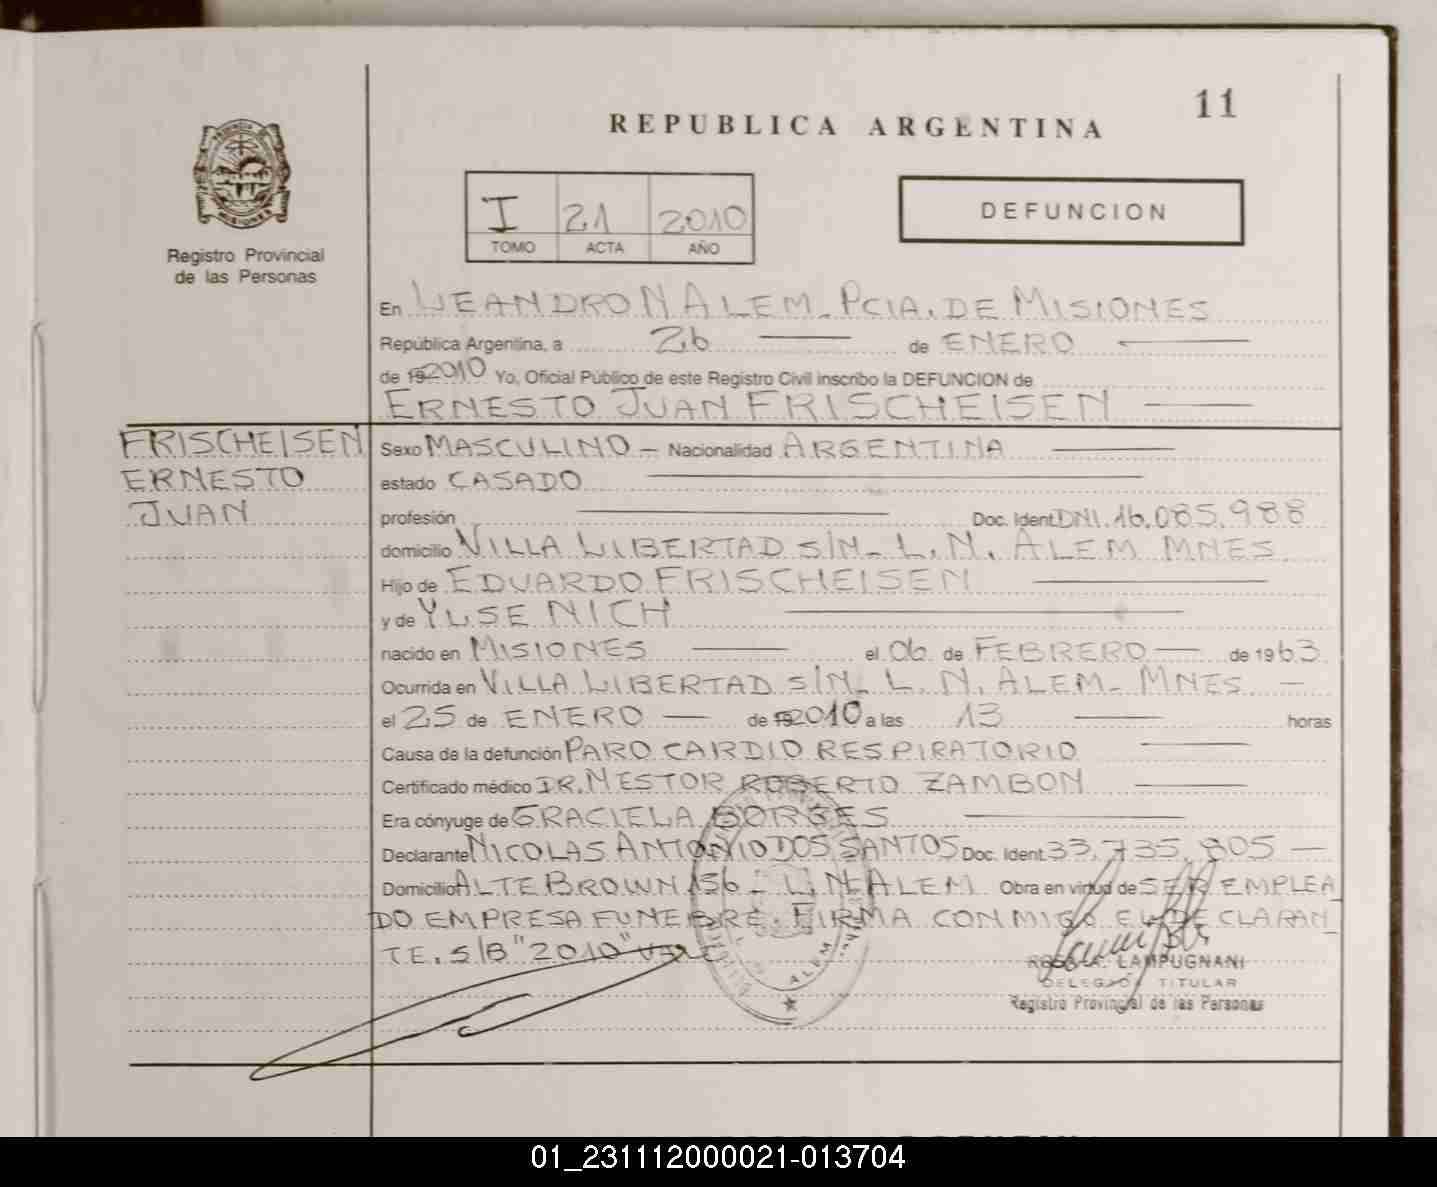 11
REPUBLICA ARGENTINA
PROVINCIA DE
MISIONES
Registro Provincial
de las Personas
I 21 2010
TOMO ACTA AÑO
DEFUNCION
En LEANDRO N ALEM - PCIA. DE MISIONES
República Argentina, a 26 de ENERO
de 19 2010 Yo, Oficial Público de este Registro Civil inscribo la DEFUNCION de
ERNESTO JUAN FRISCHEISEN
FRISCHEISEN
ERNESTO
JUAN
Sexo MASCULINO - Nacionalidad ARGENTINA
estado CASADO
profesión Doc. Ident. DNI. 16.085.988
domicilio VILLA LIBERTAD S/N - L. N. ALEM MNES
Hijo de EDUARDO FRISCHEISEN
y de YLSE NICH
nacido en MISIONES el 06 de FEBRERO de 1963
Ocurrida en VILLA LIBERTAD S/N - L. N. ALEM - MNES
el 25 de ENERO de 19 2010 a las 13 horas
Causa de la defunción PARO CARDIO RESPIRATORIO
Certificado médico DR. NESTOR ROBERTO ZAMBON
Era cónyuge de GRACIELA BORGES
Declarante NICOLAS ANTONIO DOS SANTOS Doc. Ident. 33.735.805
Domicilio ALTE BROWN 156 - L. N. ALEM Obra en virtud de SER EMPLEA
DO EMPRESA FUNEBRE. FIRMA CONMIGO EL DECLARAN
TE. S/B "2010" VALE
ALEM
ROSA A. LAMPUGNANI
DELEGADA TITULAR
Registro Provincial de las Personas
01_231112000021-013704